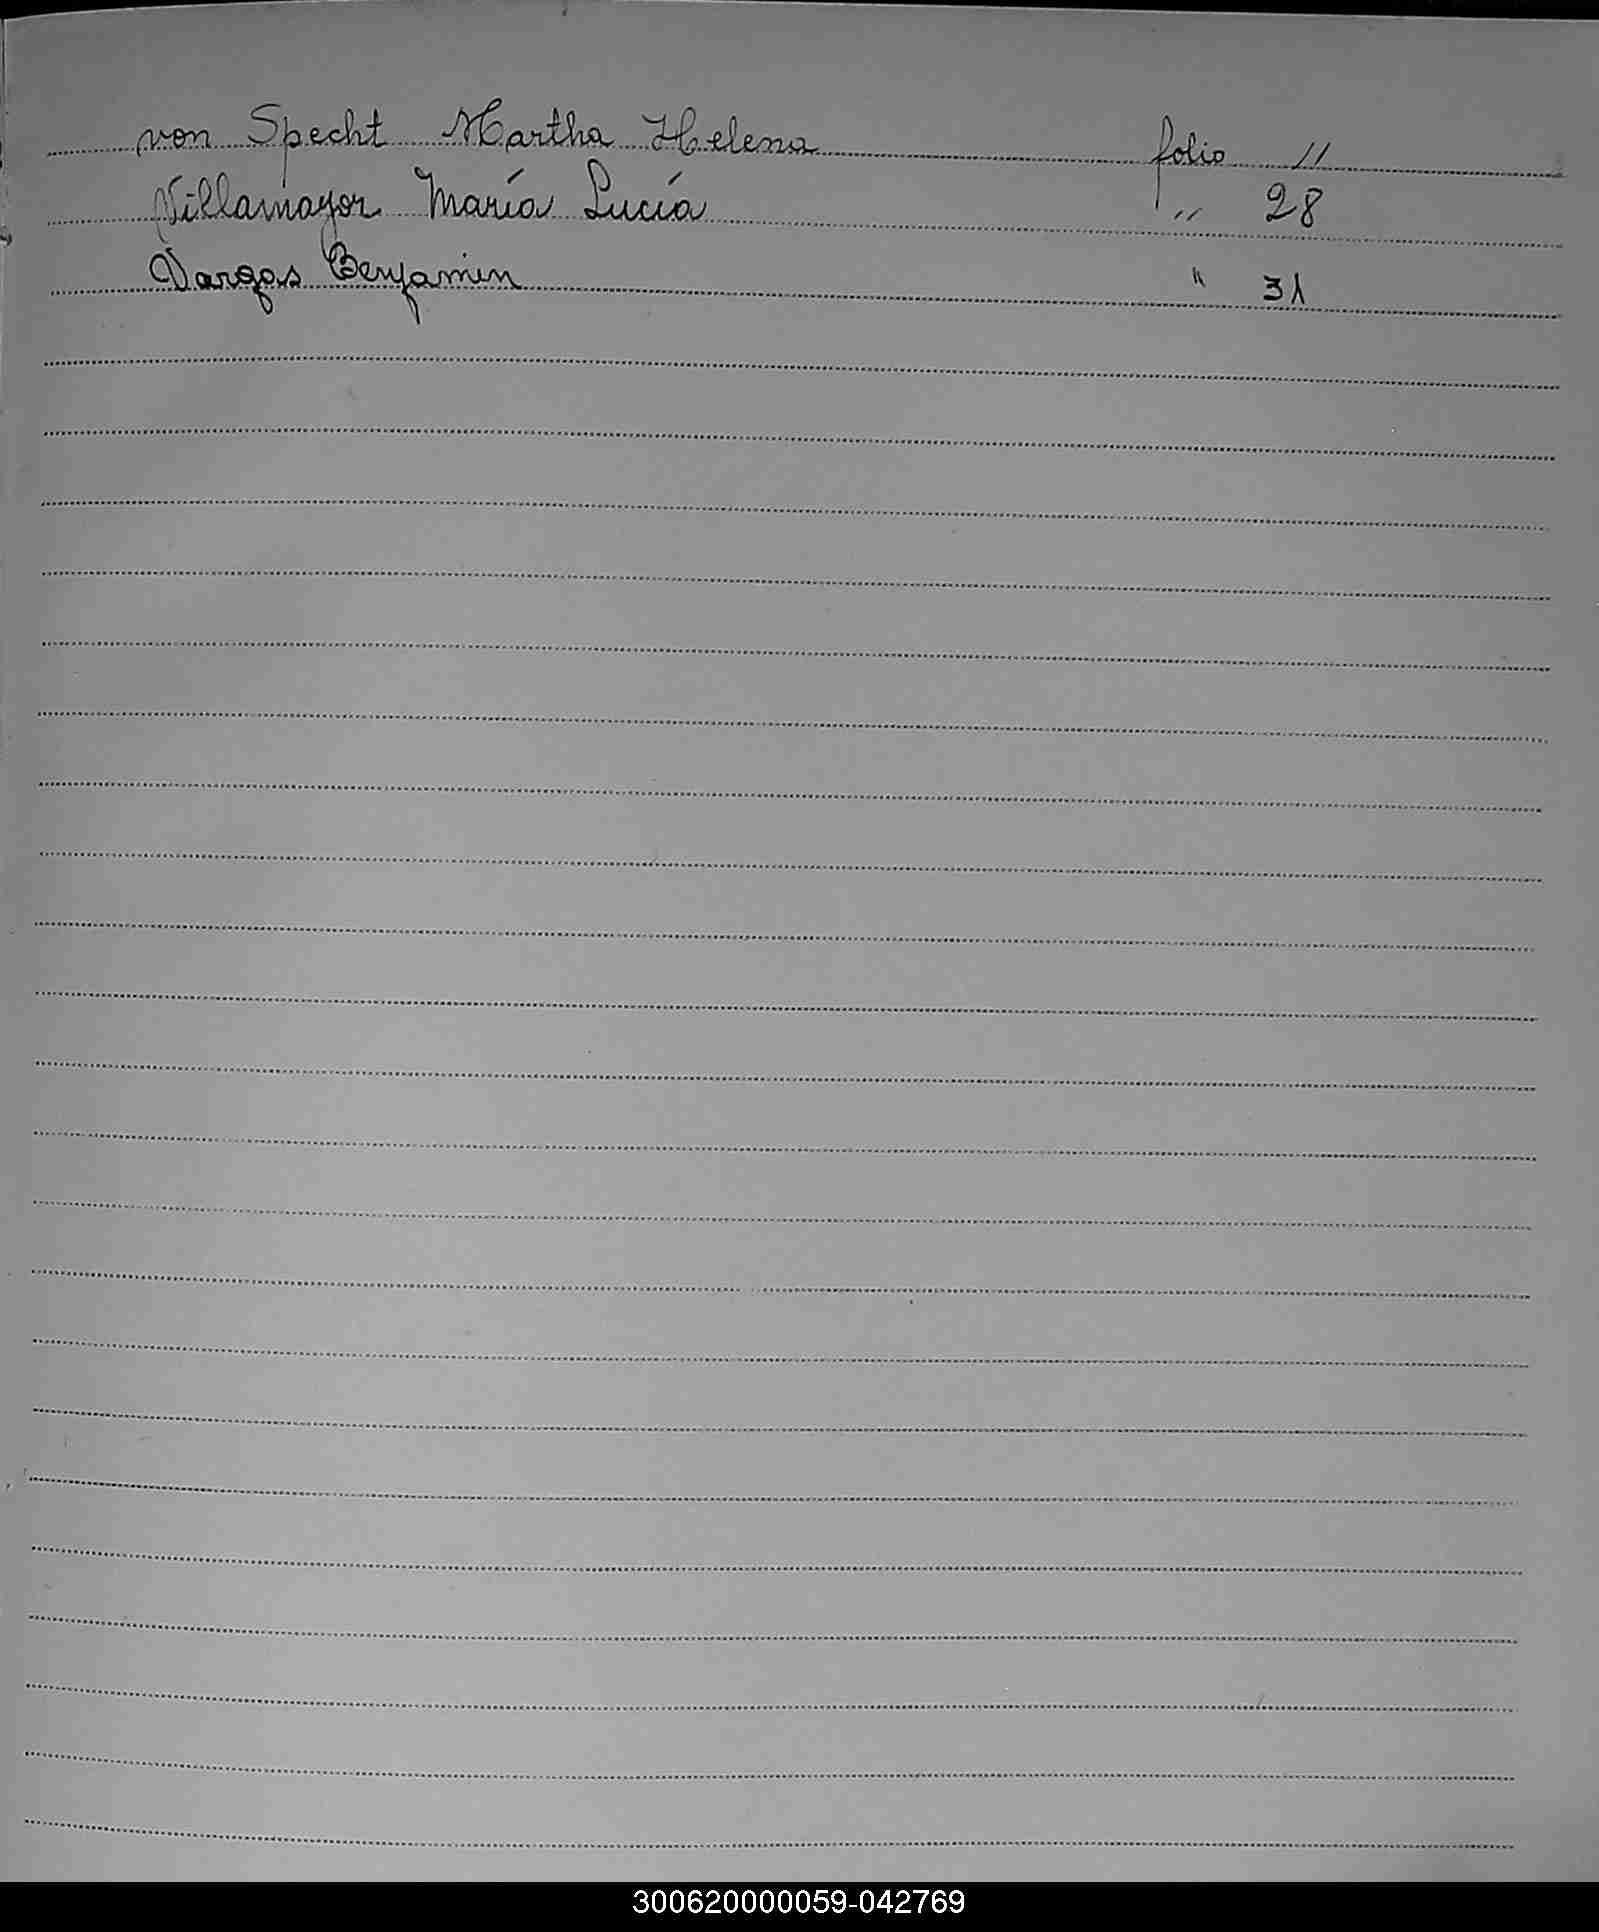 von Specht Martha Helena folio 11
Villamayor María Lucía " 28
Vargas Benjamin " 31
300620000059-042769